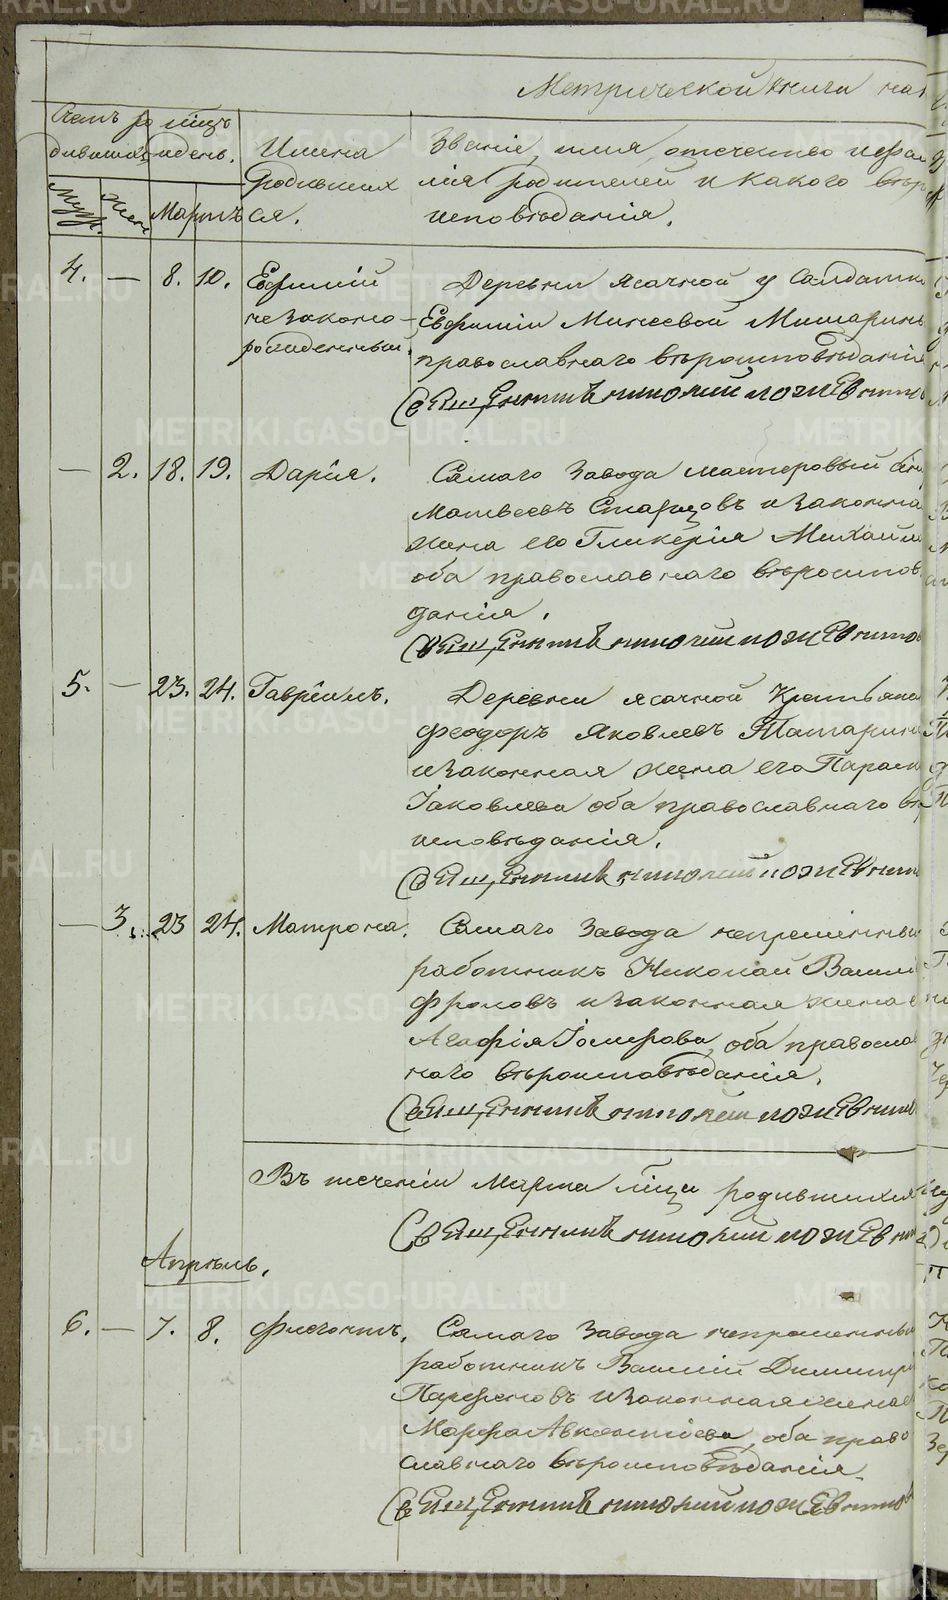 Метрической книги на
Счетъ ро
дившихся
Месяцъ
и день.
Имена
родивших
ся.
Званіе, имя, отечество и фами
лія родителей и какого вѣро
исповѣданія.
Муж.
Жен.
Мартъ
4. — 8. 10. Ефимій
незаконо-
рожденный.
Деревни Ясачной у Солдатки
Евфиміи Минеевой
православнаго вѣроисповѣданія
Священникъ Николай Ложевниковъ
— 2. 18. 19. Дарія.
Самаго Завода мастеровый
Матвеевъ Старцовъ и законная
жена его Гликерія Михайл
оба православнаго вѣроисповѣ
данія.
Священникъ Николай Ложевников
5. — 23. 24. Гавріилъ.
Деревни Ясачной Крестьянин
Феодоръ Яковлевъ Татарин
и законная жена его Параск
Іаковлева оба православнаго вѣр
исповѣданія.
Священникъ Николай Ложевник
— 3. 23 24. Матрона.
Самаго Завода непременный
работникъ Николай Васил
Фроловъ и законная жена е
Агафія оба правосла
наго вѣроисповѣданія.
Священникъ Николай Ложевник
Въ теченіи Марта м-ца родившихся
Священникъ Николай Ложевник
Апрѣль.
6. — 7. 8. Флегонтъ.
Самаго Завода непременный
работникъ Василій Димитрі
Парфеновъ и законная жена е
Марфа оба право
славнаго вѣроисповѣданія.
Священникъ Николай Ложевников
METRIKI.GASO-URAL.RU